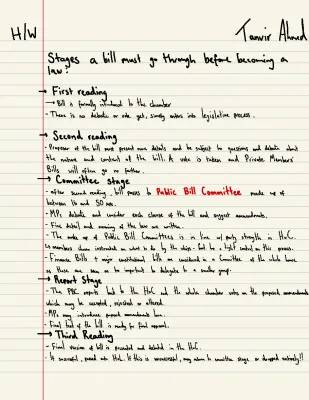 H/W
Tanvir Ahmed
Stages a bill must go through before becoming a
law:
→ First reading
→ Bill is formally introduced to the chamber
- There is no debate or vote yet, simply enters into legislative process.
Second reading
- Proposer of the bill must present more details and be subject to questions and debate about
the nature and content of the bill. A vote is taken and Private Members'
Bills will often go no further.
→ Committee stage
- After second reading, bill passes to Public Bill Committee made up of
between 16 and 50 MPs.
- MPs debate and consider each clause of the bill and suggest amendments.
- Fine detail and meaning of the law are written.
- The make up of Public Bill Committees is in line w/ party strength in HoC,
so members often instructed on what to do by the whips - govt has a tight control on this process.
- Finance Bills + major constitutional bills are considered in a Committee of the whole house
as these are seen as too important to delegate to a smaller group.
→ Report Stage
- The PBC reports back to the HoC and the whole chamber votes on the proposed amendments
which may be accepted, rejected or altered.
- MPs may introduce proposed amendments too.
- Final text of the bill is ready for final approval.
→ Third Reading
- Final version of bill is presented and debated in the HoC.
- If successful, passed onto HoL. If this is unsuccessful, may return to committee stage or dropped entirely!!